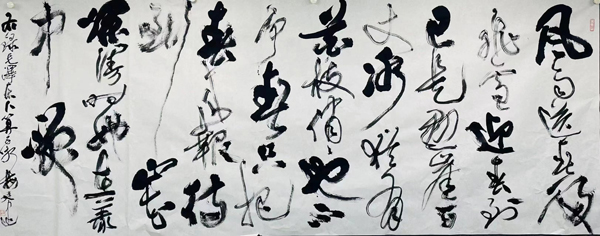 风雨送春归
飞雪迎春到
已是悬崖百
丈冰犹有
花枝俏俏也不
争春只把
春来报待
到山花
烂漫时她在丛
中笑
右录毛泽东卜算子